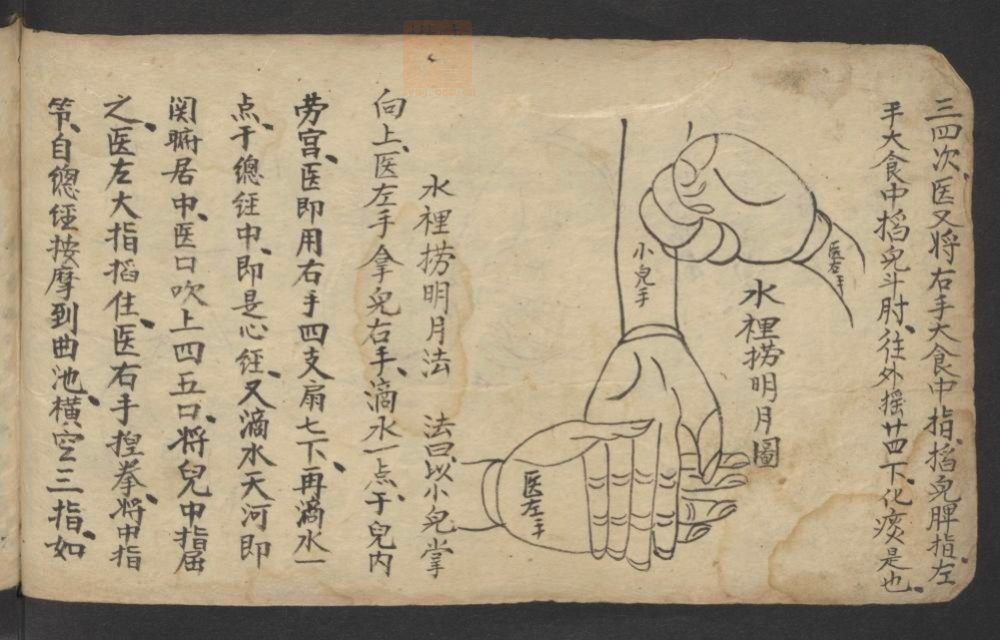 三四次、医又将右手大食中指、掐児脾指左
手大食中掐児斗肘、往外摇廿四下、化痰是也、
水裡捞明月圖
医右手
小児手
医左手
水裡捞明月法　法曰、以小児掌
向上、医左手拿児右手、滴水一点、于児内
劳宫、医即用右手四支扇七下、再滴水一
点、于總经中、即是心经、又滴水天河即
関腑居中、医口吹上四五口、将兒中指届
之、医左大指掐住、医右手揑拳、将中指
笻、自總经按摩到曲池橫空三指、如